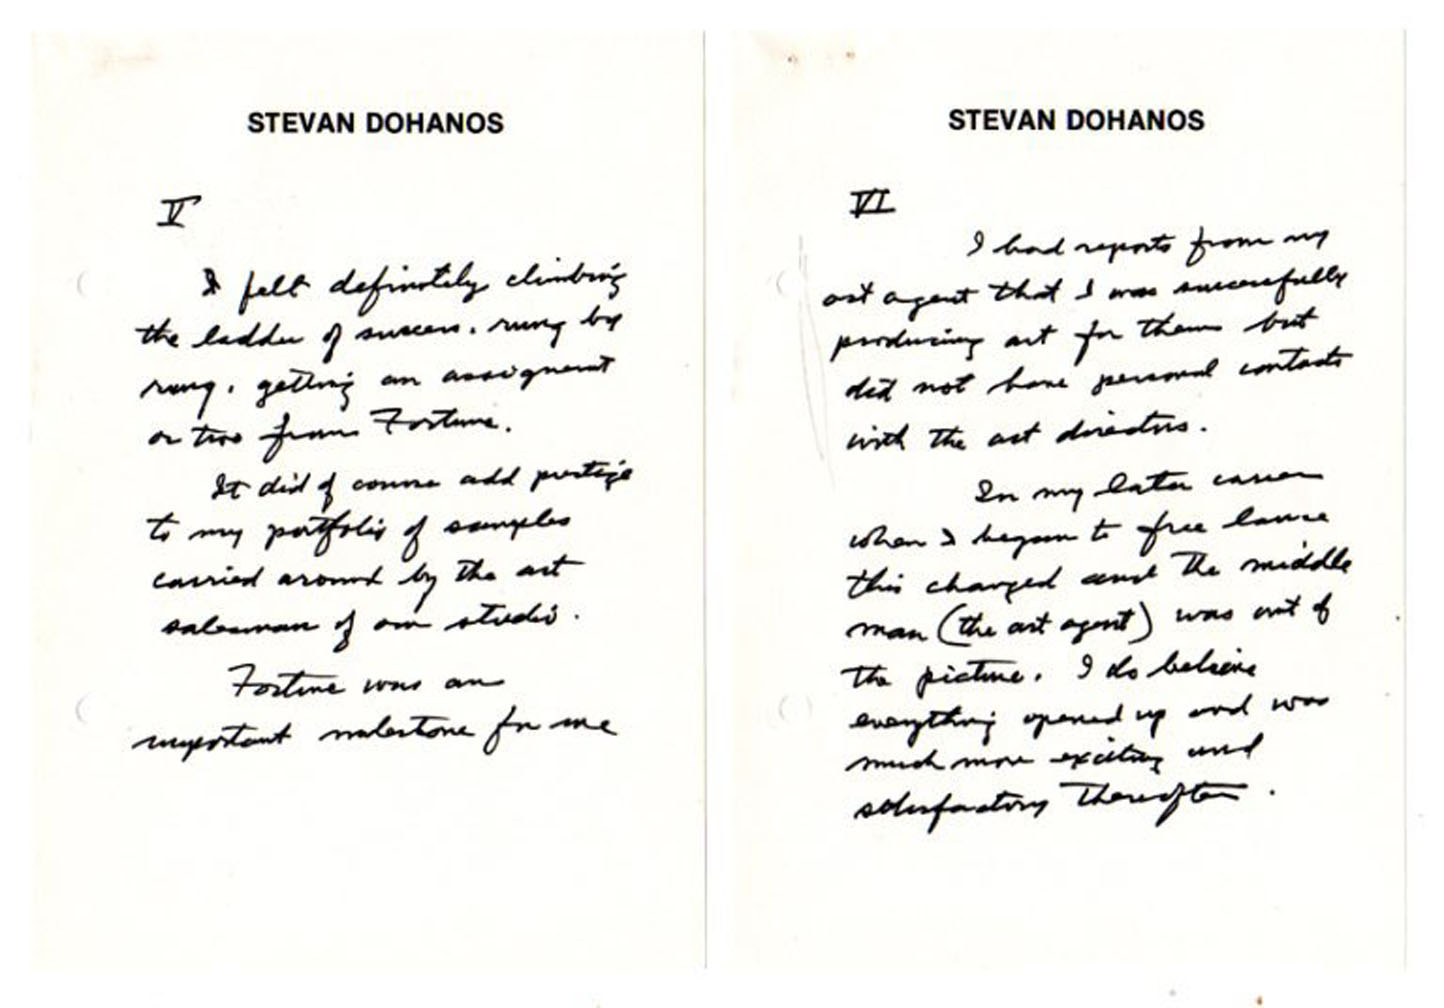 STEVAN DOHANOS
V
I felt definitely climbing
the ladder of success. rung by
rung. getting an assignment
or two from Fortune.
It did of course add prestige
to my portfolio of samples
carried around by the art
salesman of our studio.
Fortune was an
important milestone for me
STEVAN DOHANOS
VI
I had reports from my
art agent that I was successfully
producing art for them but
did not have personal contacts
with the art directors.
In my later career
when I began to free lance
this changed and the middle
man (the art agent) was out of
the picture. I do believe
everything opened up and was
much more exciting and
satisfactory thereafter.